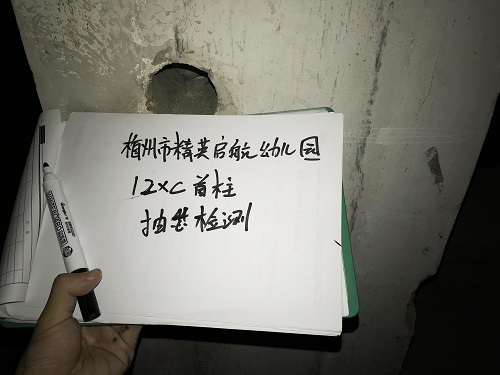 梅州市精英启航幼儿园
12×C首柱
抽芯检测